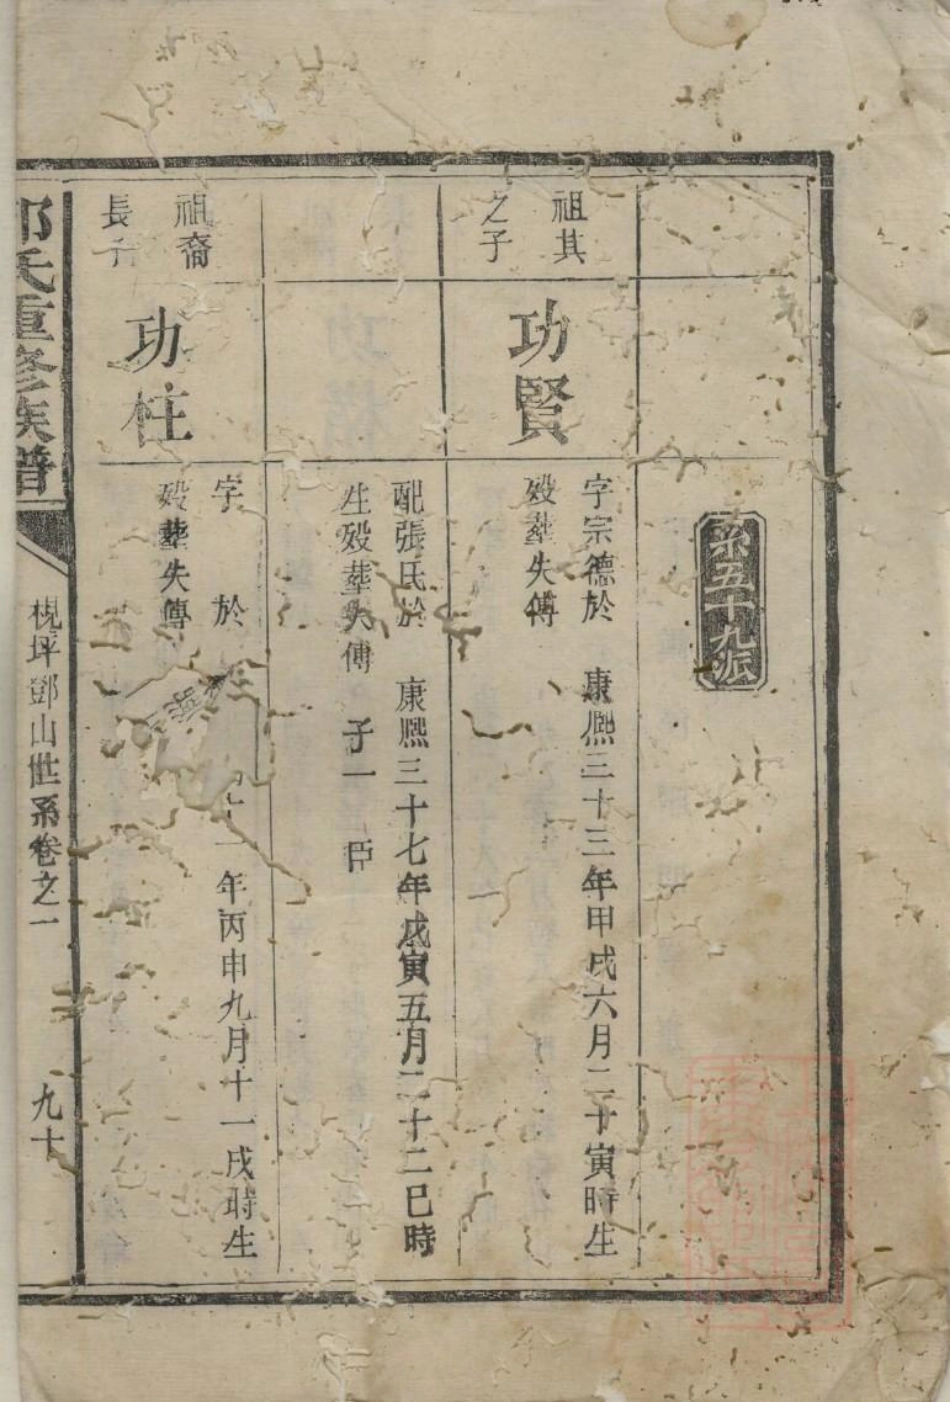 系五十九派
祖其
之子
功賢
字宗德於 康熈三十三年甲戌六月二十寅時生
殁塟失傳
配張氏於 康熈三十七年戊寅五月二十二巳時
生殁塟失傳 子一 臣
祖裔
長子
功柱
字 於 年丙申九月十一戌時生
殁塟失傳
氏重修族譜
梘坪鄧山世系卷之一
九十